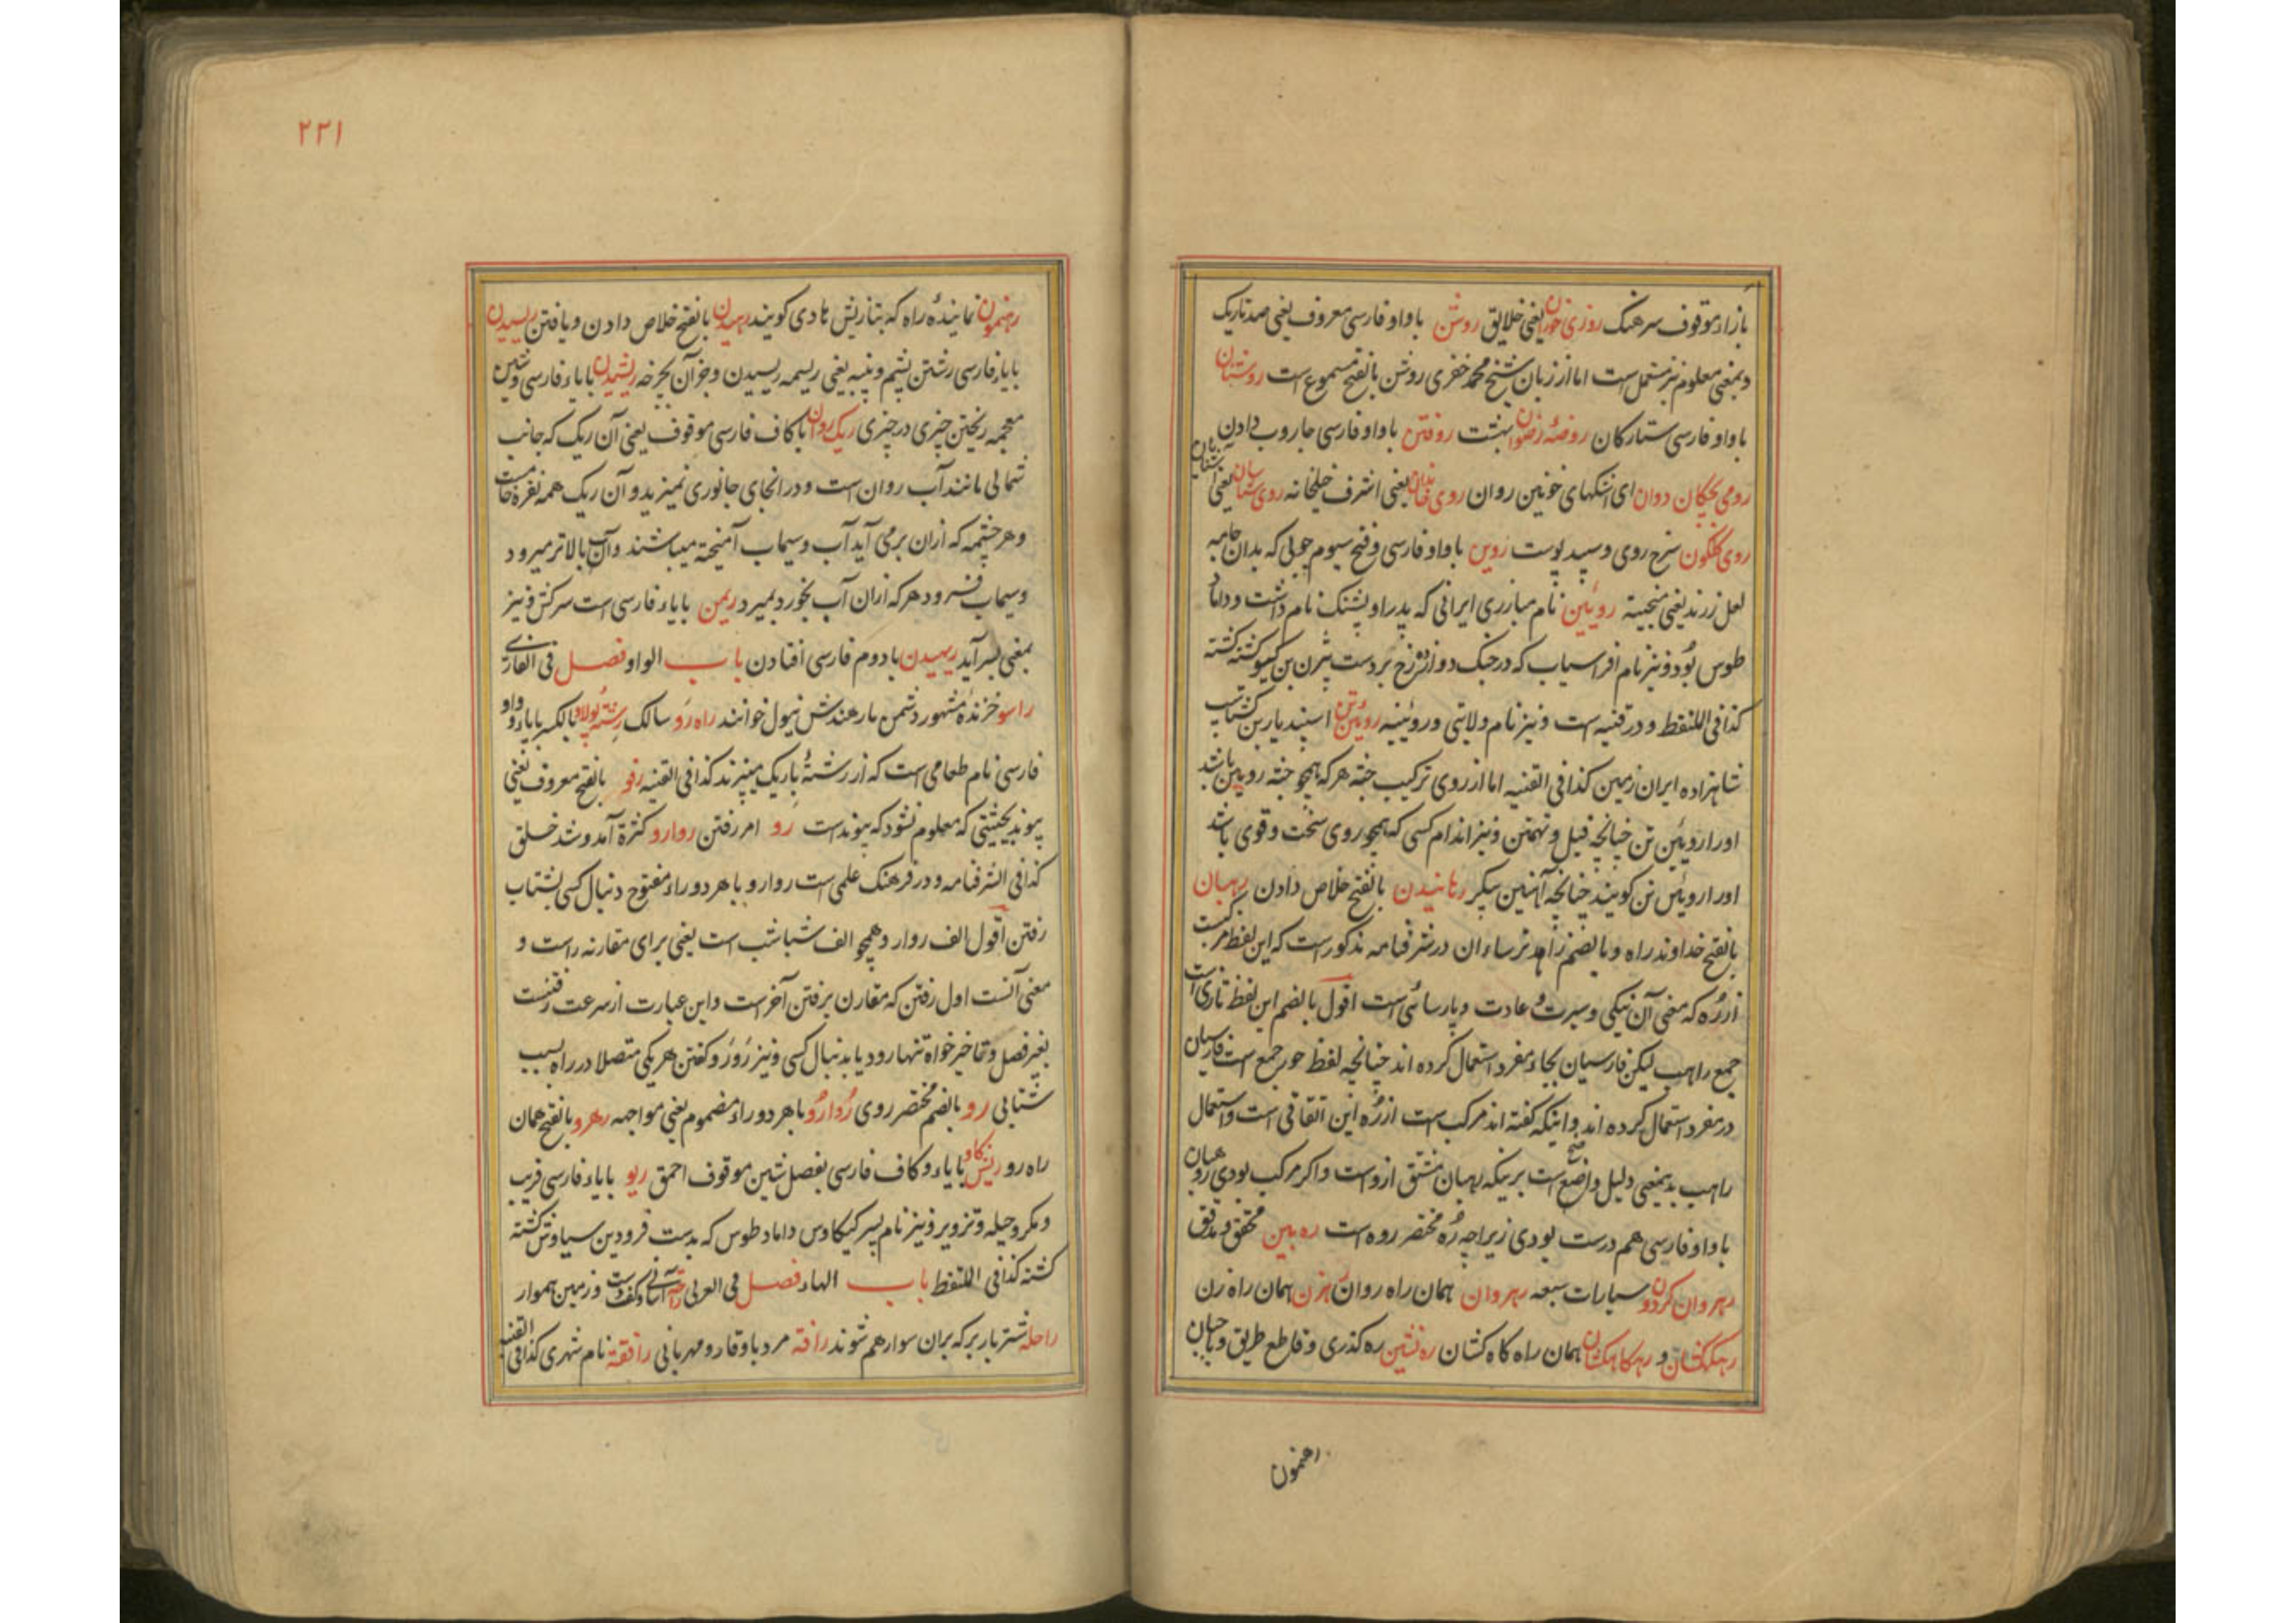 بازاء موقوف سرهنگ روزی خوران یعنی خلایق روشن باواو فارسی معروف یعنی ضد تاریک
و بمعنی معلوم نیز مستعمل است اما از زبان شیخ محمد خضری روشن بالفتح مسموع است روشنان
باواو فارسی ستارکان روضهٔ رضوان بهشت روفتن باواو فارسی جاروب دادن
رومی بچکان دوان ای اشکهای خونین روان روی یعنی اشرف روی یعنی
روی کلکون سرخ روی و سپید پوست روین باواو فارسی و فتح سیوم چوبی که بدان جامه
لعل رزند یعنی روئین نام مبارزی ایرانی که پدر او پشنک نام داشت و داماد
طوس بود و نیز نام افراسیاب که در جنک دوازده رخ بر دست بیژن بن کیو کشته کشته
کذا فی اللتقط و در قنیه است و نیز نام ولایتی و روئینه روئین تن اسپندیار بن کشتاسب
شاهزاده ایران زمین کذا فی القنیه اما از روی ترکیب جثه هر که همچو جثه رویین باشد
او را روئین تن چنانچه فیل و تهمتن و نیز اندام کسی که همچو روی سخت و قوی باشد
او را روئین تن کویند چنانچه آهنین پیکر رهانیدن بالفتح خلاص دادن رهبان
بالفتح خداوند راه و بالضم زاهد ترساءان در شرفنامه مذکور است که این لفظ مرکبست
از رُه که معنی آن نیکی و سیرت و عادت و پارسائی است اقول بالضم این لفظ تازی است
جمع راهب لیکن فارسیان بجاء مفرد استعمال کرده اند چنانچه لفظ حور جمع است فارسیان
در مفرد استعمال کرده اند و اینکه کفته اند مرکب است از رُه این اتفاقی است و استعمال
راهب بدینمعنی دلیل واضح است برینکه رهبان مشتق ازوست و اکر مرکب بودی روهبان
باواو فارسی هم درست بودی زیراچه رُه مختصر روه است ره بین محقق و مدقق
رهروان کردون سیارات سبعه رهروان همان راه روان رهزن همان راه زن
رهکشان و رهکاهکشان همان راه کاه کشان ره نشین ره کذری و قاطع طریق و
رهنمون
۲۲۱
رهنمون نمایندهٔ راه که بتازیش هادی کویند رهیدن بالفتح خلاص دادن و یافتن ریسیدن
بایاء فارسی رشتن پشم و پنبه یعنی ریسمه ریسیدن و جز آن بچرخه ریشیدن بایاء فارسی و شین
معجمه ریختن چیزی در چیزی ریک روان باکاف فارسی موقوف یعنی آن ریک که جانب
شمالی مانند آب روان است و در انجای جانوری نمیزید و آن ریک همه نقره خامست
و هر چشمه که ازان برمی آید آب و سیماب آمیخته میباشند و آب بالاتر میرود
و سیماب فرود هر که ازان آب بخورد بمیرد ریمن بایاء فارسی است سرکش و نیز
بمعنی بسر آید ریهیدن با دوم فارسی افتادن باب الواو فصل فی الفارسی
راسو خزندهٔ مشهور دشمن مار هندش نیول خوانند راه رَو سالک رشته پولاو بالکسر بایاء و واو
فارسی نام طعامی است که از رشتهٔ باریک میپزند کذا فی القنیه رفو بالفتح معروف یعنی
پیوند بحیثیتی که معلوم نشود که پیوند است رو امر رفتن روارو کثرة آمد و شد خلق
کذا فی الشرفنامه و در فرهنک علمی است روارو با هر دو راء مفتوح دنبال کسی بشتاب
رفتن اقول الف روارو همچو الف شباشب است یعنی برای مقارنه راست و
معنی آنست اول رفتن که مقارن برفتن آخر است و این عبارت از سرعت رفتنست
بغیر فصل و تاخیر خواه تنها رود یا بدنبال کسی و نیز رَورَو کفتن هر یکی متصلا در راه بسبب
شتابی رو بالضم مختصر روی رُوارُو با هر دو راء مضموم یعنی مواجهه رهرو بالفتح همان
راه رو ریش کاو بایاء و کاف فارسی بفصل شین موقوف احمق ریو بایاء فارسی فریب
و مکر و حیله و تزویر و نیز نام پسر کیکاوس داماد طوس که بدست فرود بن سیاوش کشته
کشته کذا فی اللتقط باب الهاء فصل فی العربی راحة آسانی و کف دست و زمین هموار
راحله شتر باربر که بران سوار هم شوند رافه مرد باوقار و مهربانی رافقة نام شهری کذا فی القنیه